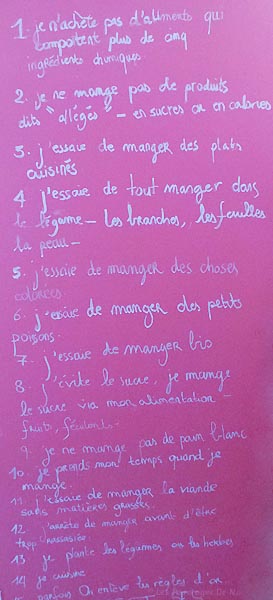 1. je n'achète pas d'aliments qui
comportent plus de cinq
ingrédients chimiques.
2. je ne mange pas de produits
dits "allégés" - en sucres ou en calories
3. j'essaie de manger des plats
cuisinés
4 j'essaie de tout manger dans
le légume - les branches, les feuilles
la peau -
5. j'essaie de manger des choses
colorées.
6. j'essaie de manger des petits
poissons.
7. j'essaie de manger bio
8. j'évite le sucre, je mange
le sucre via mon alimentation -
fruits, féculents.
9. je ne mange pas de pain blanc
10. je prends mon temps quand je
mange.
11. j'essaie de manger la viande
sans matières grasses.
12. j'arrête de manger avant d'être
trop rassasiée.
13. je plante les légumes ou les herbes
14 je cuisine
15 parfois on enlève les règles d'or